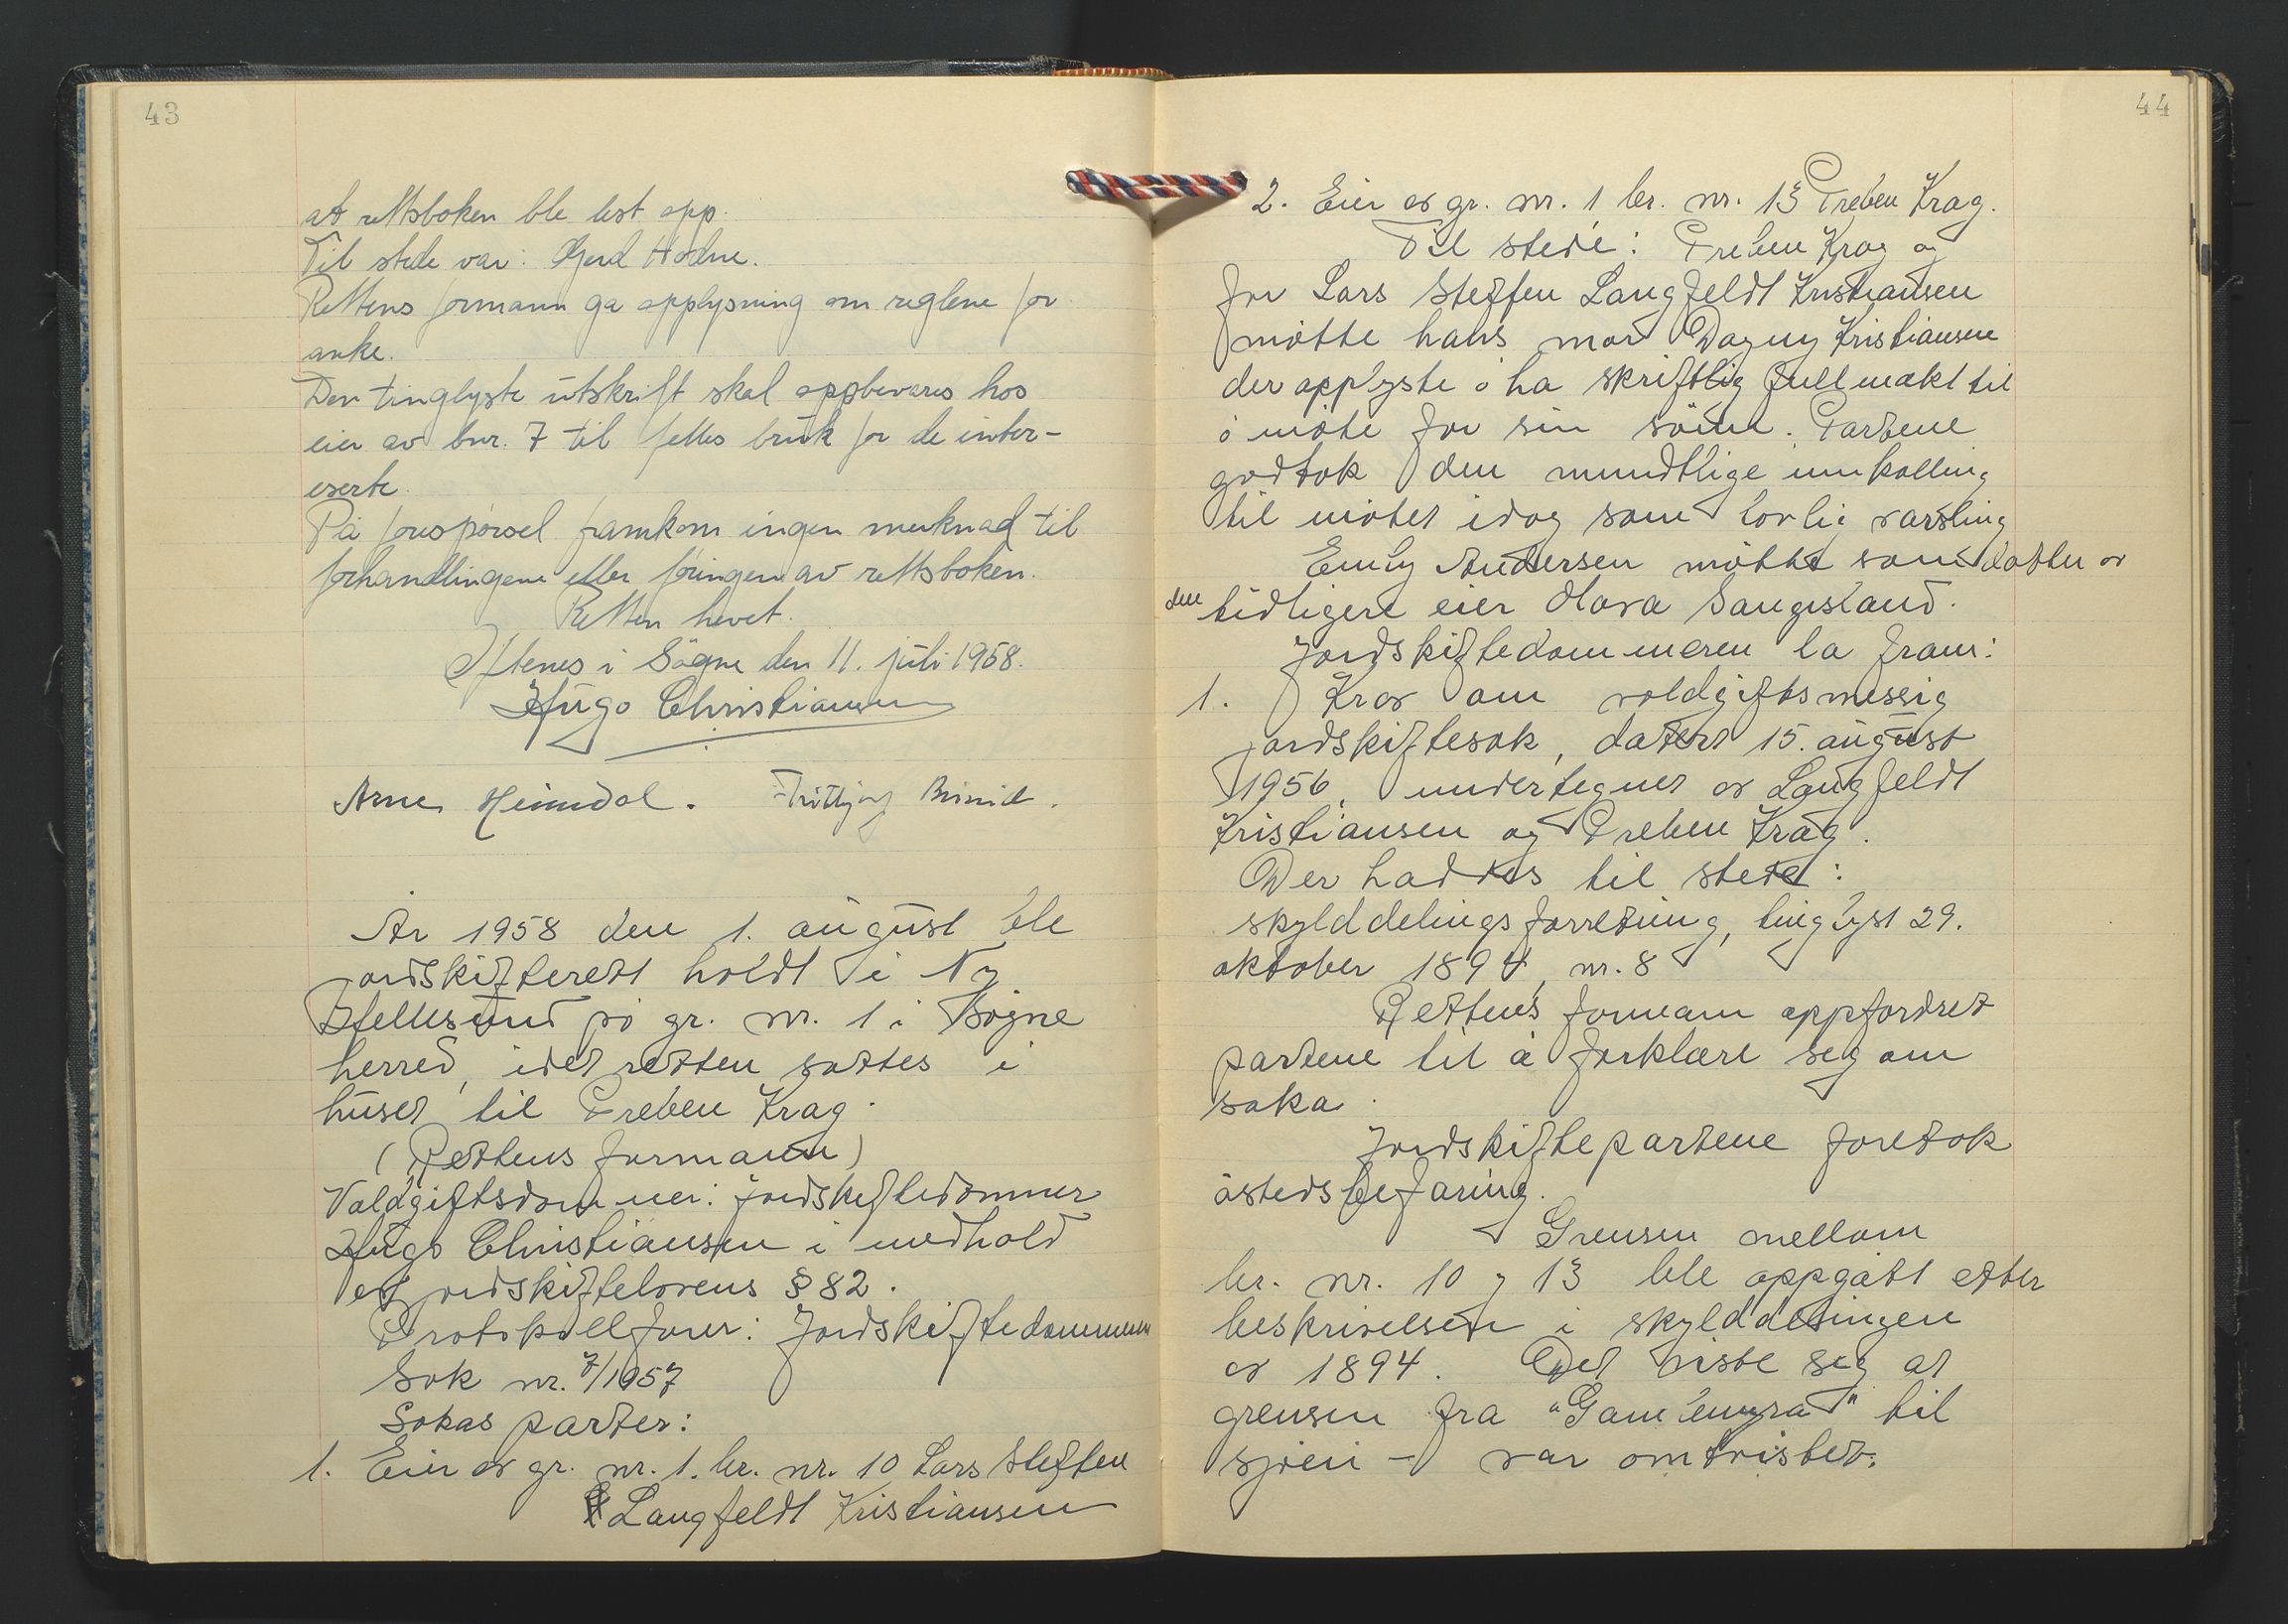 43
at rettsboken ble lest opp.
Til stede var: Gerd Hodne.
Rettens formann ga opplysning om reglene for
anke.
Den tinglyste utskrift skal oppbevares hos
eier av bnr. 7 til felles bruk for de inter-
eserte.
På forespørsel framkom ingen merknad til
forhandlingene eller föringen av rettsboken.
Retten hevet.
Iftenes i Sögne den 11. juli 1958.
Hugo Christiansen
Arne Heimdal. Frithjof
År 1958 den 1. august ble
jordskifterett holdt i Ny
Hellesund på gr. nr. 1 i Sögne
herred, idet retten sattes i
huset til Preben Krag.
(Rettens formann)
Voldgiftsdommer: jordskiftedommer
Hugo Christiansen i medhold
av jordskiftelovens § 82.
Protokollförer: Jordskiftedommeren
Sak nr. 7/1957
Sakas parter:
1. Eier av gr. nr. 1. br. nr. 10 Lars Steffen
Langfeldt Kristiansen
44
2. Eier av gr. nr. 1 br. nr. 13 Preben Krag.
Til stede: Preben Krag og
for Lars Steffen Langfeldt Kristiansen
møtte hans mor Dagny Kristiansen
der opplyste å ha skriftlig fullmakt til
å møte for sin sönn. Partene
godtok den mundtlige innkalling
til møtet idag som lovlig varsling
Emily Andersen mötte som datter av
den tidligere eier Olava Sangesland.
Jordskiftedommeren la fram:
1. Krav om voldgiftsmessig
jordskiftesak, datert 15. august
1956, undertegnet av Langfeldt
Kristiansen og Preben Krag.
Der haddes til stede:
skylddelingsforretning, tinglyst 29.
oktober 1894, nr. 8
Rettens formann oppfordret
partene til å forklare seg om
saka.
Jordskiftepartene foretok
åstedsbefaring.
Grensen mellom
br. nr. 10 og 13 ble oppgått etter
beskrivelsen i skylddelingen
av 1894. Det viste seg at
grensen fra "Gamlemyra" til
sjøen – var omtvistet.